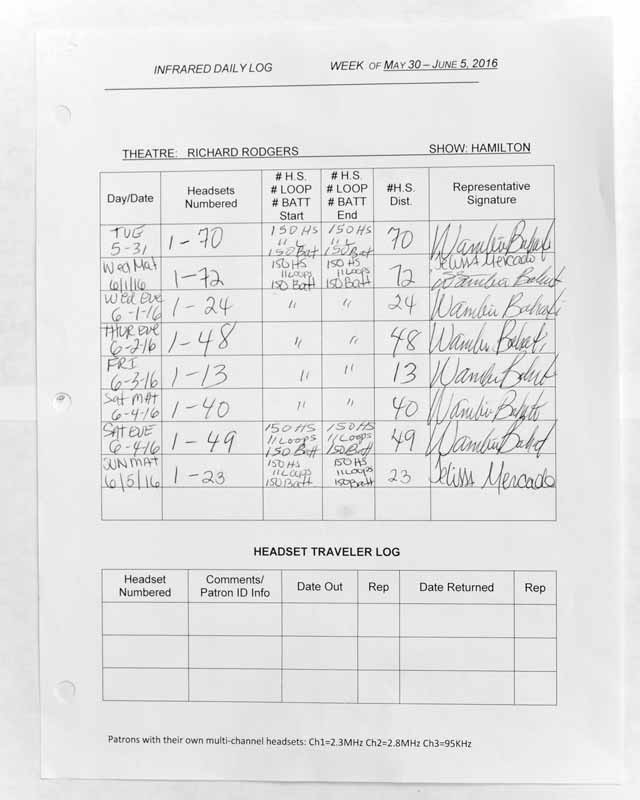 INFRARED DAILY LOG WEEK OF MAY 30 – JUNE 5, 2016
THEATRE: RICHARD RODGERS SHOW: HAMILTON
Day/Date Headsets Numbered # H.S. # LOOP # BATT Start # H.S. # LOOP # BATT End #H.S. Dist. Representative Signature
TUE 5-31 1-70 150 HS 11 L 150 Batt 150 HS 11 L 150 Batt 70
Wed Mat 6/1/16 1-72 150 HS 11 Loops 150 Batt 150 HS 11 Loops 150 Batt 72 Jelissa Mercado
Wed Eve 6-1-16 1-24 " " 24
THUR EVE 6-2-16 1-48 " " 48
FRI 6-3-16 1-13 " " 13
Sat MAT 6-4-16 1-40 " " 40
SAT EVE 6-4-16 1-49 150 HS 11 Loops 150 Batt 150 HS 11 Loops 150 Batt 49
SUN MAT 6/5/16 1-23 150 HS 11 Loops 150 Batt 150 HS 11 Loops 150 Batt 23 Jelissa Mercado
HEADSET TRAVELER LOG
Headset Numbered Comments/ Patron ID Info Date Out Rep Date Returned Rep
Patrons with their own multi-channel headsets: Ch1=2.3MHz Ch2=2.8MHz Ch3=95KHz